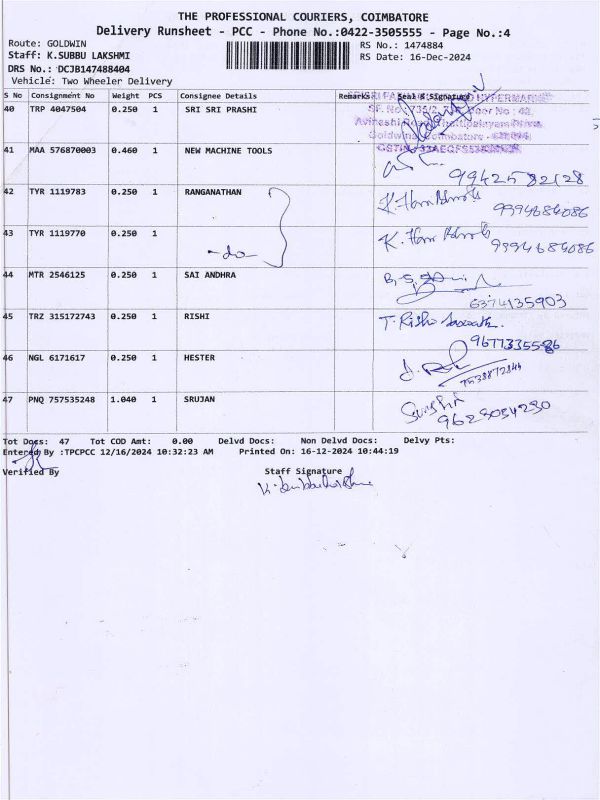 THE PROFESSIONAL COURIERS, COIMBATORE
Delivery Runsheet - PCC - Phone No.:0422-3505555 - Page No.:4
Route: GOLDWIN
Staff: K.SUBBU LAKSHMI
DRS No.: DCJB147488404
Vehicle: Two Wheeler Delivery
RS No.: 1474884
RS Date: 16-Dec-2024
S No Consignment No Weight PCS Consignee Details Remarks Seal & Signature
40 TRP 4047504 0.250 1 SRI SRI PRASHI
41 MAA 576870003 0.460 1 NEW MACHINE TOOLS
9942582128
42 TYR 1119783 0.250 1 RANGANATHAN
9994684086
43 TYR 1119770 0.250 1 -do-
9994684086
44 MTR 2546125 0.250 1 SAI ANDHRA
6374135903
45 TRZ 315172743 0.250 1 RISHI
9677335586
46 NGL 6171617 0.250 1 HESTER
47 PNQ 757535248 1.040 1 SRUJAN
Tot Docs: 47 Tot COD Amt: 0.00 Delvd Docs: Non Delvd Docs: Delvy Pts:
Entered By :TPCPCC 12/16/2024 10:32:23 AM Printed On: 16-12-2024 10:44:19
Verified By Staff Signature